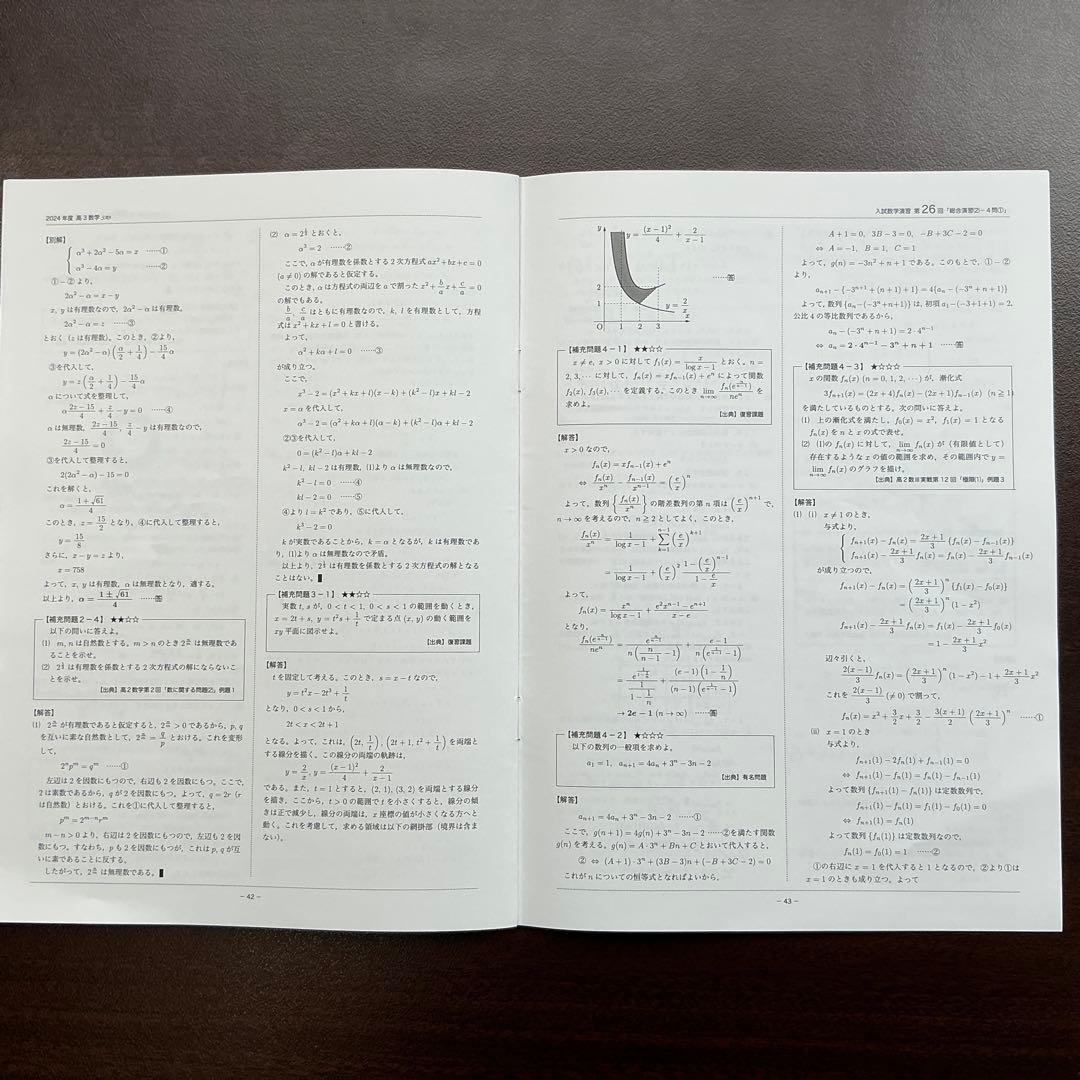 2024年度 高3数学
【別解】
α³+2α²−5α=x ……①
α³−4α=y ……②
①−②より,
2α²−α=x−y
x, yは有理数なので, 2α²−αは有理数。
2α²−α=z ……③
とおく(zは有理数)。このとき, ②より,
y=(2α²−α)(α/2+1/4)−15/4α
③を代入して,
y=z(α/2+1/4)−15/4α
αについて式を整理して,
α(2z−15)/4+z/4−y=0 ……④
αは無理数, (2z−15)/4, z/4−yは有理数なので,
(2z−15)/4=0
③を代入して整理すると,
2(2α²−α)−15=0
これを解くと,
α=(1±√61)/4
このとき, z=15/2となり, ④に代入して整理すると,
y=15/8
さらに, x−y=zより,
x=758
よって, x, yは有理数, αは無理数となり, 適する。
以上より, α=(1±√61)/4 ……答
【補充問題2−4】★★☆☆
以下の問に答えよ。
(1) m, nは自然数とする。m>nのとき2^(n/m)は無理数であ
ることを示せ。
(2) 2^(1/3)は有理数を係数とする2次方程式の解にならないこ
とを示せ。
【出典】高2数学第2回「数に関する問題(2)」例題1
【解答】
(1) 2^(n/m)が有理数であると仮定すると, 2^(n/m)>0であるから, p, q
を互いに素な自然数として, 2^(n/m)=q/pとおける。これを変形
して,
2ⁿpᵐ=qᵐ ……①
左辺は2を因数にもつので, 右辺も2を因数にもつ。ここで,
2は素数であるから, qが2を因数にもつ。よって, q=2r(r
は自然数)とおける。これを①に代入して整理すると,
pᵐ=2ᵐ⁻ⁿrᵐ
m−n>0より, 右辺は2を因数にもつので, 左辺も2を因
数にもつ。すなわち, pも2を因数にもつが, これはp, qが互
いに素であることに反する。
したがって, 2^(n/m)は無理数である。
(2) α=2^(1/3)とおくと,
α³=2 ……②
ここで, αが有理数を係数とする2次方程式ax²+bx+c=0
(a≠0)の解であると仮定する。
このとき, αは方程式の両辺をaで割ったx²+b/a x+c/a=0
の解でもある。
b/a, c/aはともに有理数なので, k, lを有理数として, 方程
式はx²+kx+l=0と書ける。
よって,
α²+kα+l=0 ……③
が成り立つ。
ここで,
x³−2=(x²+kx+l)(x−k)+(k²−l)x+kl−2
x=αを代入して,
α³−2=(α²+kα+l)(α−k)+(k²−l)α+kl−2
②③を代入して,
0=(k²−l)α+kl−2
k²−l, kl−2は有理数, (1)よりαは無理数なので,
k²−l=0 ……④
kl−2=0 ……⑤
④よりl=k²であり, ⑤に代入して,
k³−2=0
kが実数であることから, k=αとなるが, kは有理数であ
り, (1)よりαは無理数なので矛盾。
以上より, 2^(1/3)は有理数を係数とする2次方程式の解となる
ことはない。
【補充問題3−1】★★☆☆
実数t, sが, 0<t<1, 0<s<1の範囲を動くとき,
x=2t+s, y=t²s+1/tで定まる点(x, y)の動く範囲を
xy平面に図示せよ。
【出典】復習課題
【解答】
tを固定して考える。このとき, s=x−tなので,
y=t²x−2t³+1/t
となり, 0<s<1から,
2t<x<2t+1
となる。よって, これは, (2t, 1/t), (2t+1, t²+1/t)を両端と
する線分を描く。この線分の両端の軌跡は,
y=2/x, y=(x−1)²/4+2/(x−1)
である。また, t=1とすると, (2, 1), (3, 2)を両端とする線分
を描き, ここから, t>0の範囲でtを小さくすると, 線分の傾
きは正で減少し, 線分の両端は, x座標の値が小さくなる方へと
動く。これを考慮して, 求める領域は以下の網掛部(境界は含ま
ない)。
− 42 −
入試数学演習 第26回「総合演習(2)−4問①」
y
y=(x−1)²/4+2/(x−1)
……答
2
1
y=2/x
O 1 2 3 x
【補充問題4−1】★★☆☆
x≠e, x>0に対してf₁(x)=x/(log x−1)とおく。n=
2, 3, …に対して, fₙ(x)=xfₙ₋₁(x)+eⁿによって関数
f₂(x), f₃(x), …を定義する。このときlim(n→∞) fₙ(e^(n/(n−1)))/(neⁿ)を
求めよ。
【出典】復習課題
【解答】
x>0なので,
fₙ(x)=xfₙ₋₁(x)+eⁿ
⇔ fₙ(x)/xⁿ−fₙ₋₁(x)/xⁿ⁻¹=(e/x)ⁿ
よって, 数列{fₙ(x)/xⁿ}の階差数列の第n項は(e/x)ⁿ⁺¹で,
n→∞を考えるので, n≧2としてよく, このとき,
fₙ(x)/xⁿ=1/(log x−1)+Σ(k=1→n−1)(e/x)ᵏ⁺¹
=1/(log x−1)+(e/x)²(1−(e/x)ⁿ⁻¹)/(1−e/x)
よって,
fₙ(x)=xⁿ/(log x−1)+(e²xⁿ⁻¹−eⁿ⁺¹)/(x−e)
となり,
fₙ(e^(n/(n−1)))/(neⁿ)=e^(n/(n−1))/(n(n/(n−1)−1))+(e−1)/(n(e^(1/(n−1))−1))
=e^(1/(1−1/n))/(1/(1−1/n))+(e−1)(1−1/n)/((n−1)(e^(1/(n−1))−1))
→2e−1 (n→∞) ……答
【補充問題4−2】★☆☆☆
以下の数列の一般項を求めよ。
a₁=1, aₙ₊₁=4aₙ+3ⁿ−3n−2
【出典】有名問題
【解答】
aₙ₊₁=4aₙ+3ⁿ−3n−2 ……①
ここで, g(n+1)=4g(n)+3ⁿ−3n−2 ……②を満たす関数
g(n)を考える。g(n)=A・3ⁿ+Bn+Cとおいて代入すると,
② ⇔ (A+1)・3ⁿ+(3B−3)n+(−B+3C−2)=0
これがnについての恒等式となればよいから,
A+1=0, 3B−3=0, −B+3C−2=0
⇔ A=−1, B=1, C=1
よって, g(n)=−3ⁿ+n+1である。このもとで, ①−②
より,
aₙ₊₁−{−3ⁿ⁺¹+(n+1)+1}=4{aₙ−(−3ⁿ+n+1)}
よって, 数列{aₙ−(−3ⁿ+n+1)}は, 初項a₁−(−3+1+1)=2,
公比4の等比数列であるから,
aₙ−(−3ⁿ+n+1)=2・4ⁿ⁻¹
⇔ aₙ=2・4ⁿ⁻¹−3ⁿ+n+1 ……答
【補充問題4−3】★☆☆☆
xの関数fₙ(x) (n=0, 1, 2, …)が, 漸化式
3fₙ₊₁(x)=(2x+4)fₙ(x)−(2x+1)fₙ₋₁(x) (n≧1)
を満たしているものとする。次の問いに答えよ。
(1) 上の漸化式を満たし, f₀(x)=x², f₁(x)=1となる
fₙ(x)をnとxの式で表せ。
(2) (1)のfₙ(x)に対して, lim(n→∞) fₙ(x)が(有限値として)
存在するようなxの値の範囲を求め, その範囲内でy=
lim(n→∞) fₙ(x)のグラフを描け。
【出典】高2数Ⅲ実戦第12回「極限(1)」例題3
【解答】
(1) (i) x≠1のとき,
与式より,
fₙ₊₁(x)−fₙ(x)=(2x+1)/3{fₙ(x)−fₙ₋₁(x)}
fₙ₊₁(x)−(2x+1)/3 fₙ(x)=fₙ(x)−(2x+1)/3 fₙ₋₁(x)
が成り立つので,
fₙ₊₁(x)−fₙ(x)=((2x+1)/3)ⁿ{f₁(x)−f₀(x)}
=((2x+1)/3)ⁿ(1−x²)
fₙ₊₁(x)−(2x+1)/3 fₙ(x)=f₁(x)−(2x+1)/3 f₀(x)
=1−(2x+1)/3 x²
辺々引くと,
2(x−1)/3 fₙ(x)=((2x+1)/3)ⁿ(1−x²)−1+(2x+1)/3 x²
これを2(x−1)/3(≠0)で割って,
fₙ(x)=x²+3/2x+3/2−3(x+1)/2((2x+1)/3)ⁿ ……①
(ii) x=1のとき
与式より,
fₙ₊₁(1)−2fₙ(1)+fₙ₋₁(1)=0
⇔ fₙ₊₁(1)−fₙ(1)=fₙ(1)−fₙ₋₁(1)
よって数列{fₙ₊₁(1)−fₙ(1)}は定数数列で,
fₙ₊₁(1)−fₙ(1)=f₁(1)−f₀(1)=0
⇔ fₙ₊₁(1)=fₙ(1)
よって数列{fₙ(1)}は定数数列なので,
fₙ(1)=f₀(1)=1 ……②
①の右辺にx=1を代入すると1となるので, ②より①は
x=1のときも成り立つ。よって
− 43 −